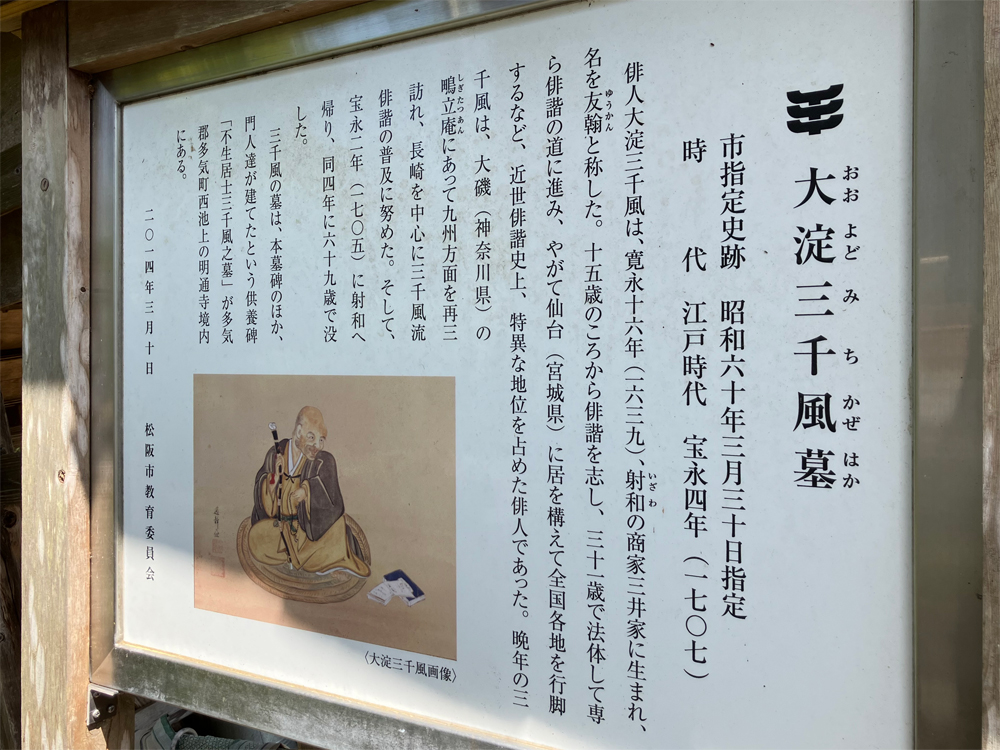 大淀三千風墓
おおよどみちかぜはか
市指定史跡 昭和六十年三月三十日指定
時代 江戸時代 宝永四年(一七〇七)
俳人大淀三千風は、寛永十六年(一六三九)、射和の商家三井家に生まれ、
いざわ
名を友翰と称した。十五歳のころから俳諧を志し、三十一歳で法体して専
ゆうかん
ら俳諧の道に進み、やがて仙台(宮城県)に居を構えて全国各地を行脚
するなど、近世俳諧史上、特異な地位を占めた俳人であった。晩年の三
千風は、大磯(神奈川県)の
鴫立庵にあって九州方面を再三
しぎたつあん
訪れ、長崎を中心に三千風流
俳諧の普及に努めた。そして、
宝永二年(一七〇五)に射和へ
帰り、同四年に六十九歳で没
した。
三千風の墓は、本墓碑のほか、
門人達が建てたという供養碑
「不生居士三千風之墓」が多気
郡多気町西池上の明通寺境内
にある。
二〇一四年三月十日 松阪市教育委員会
〈大淀三千風画像〉